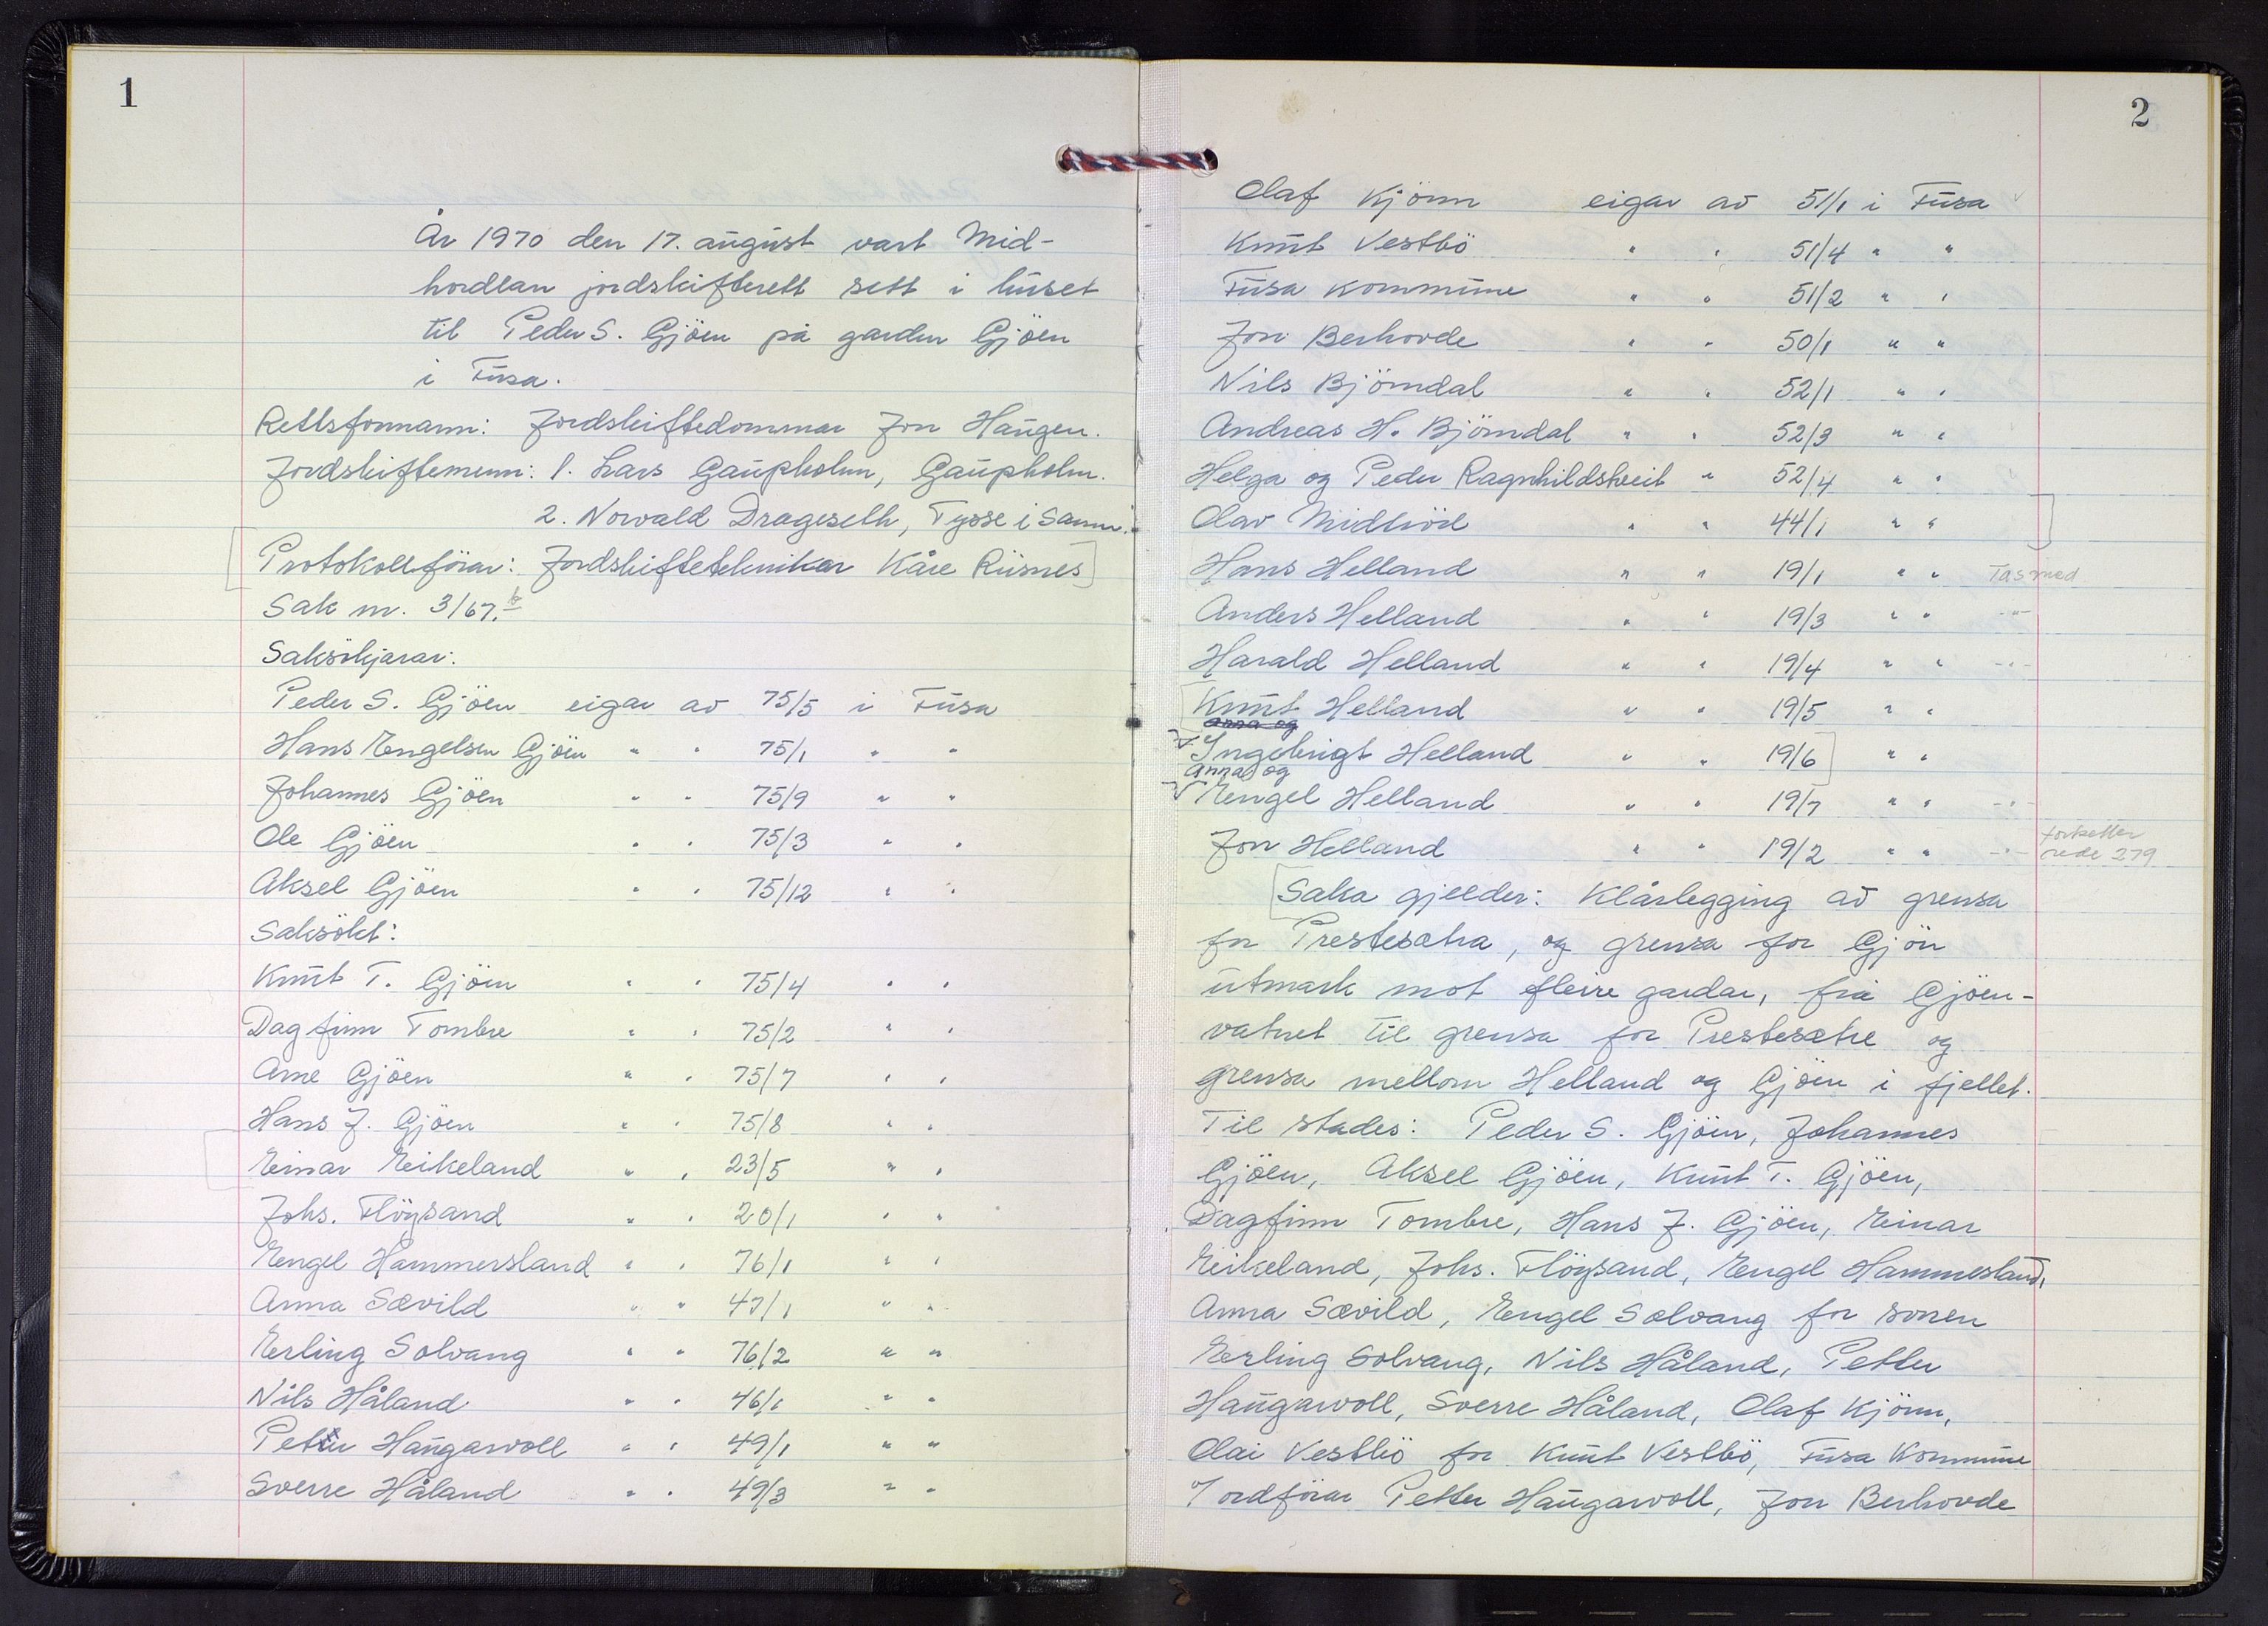 1
År 1970 den 17. august vart Mid-
hordlan jordskifterett sett i huset
til Peder S. Gjöen på garden Gjöen
i Fusa.
Rettsformann: Jordskiftedommar Jon Haugen.
Jordskiftemenn: 1. Lars Gaupholm, Gaupholm.
2. Norvald Drageseth, Tysse i Samn.
Protokollförar: Jordskiftetekniker Kåre Risnes
Sak nr. 3/67. b
Saksökjarar:
Peder S. Gjöen eigar av 75/5 i Fusa
Hans Engelsen Gjöen " " 75/1 " "
Johannes Gjöen " " 75/9 " "
Ole Gjöen " " 75/3 " "
Aksel Gjöen " " 75/12 " "
Saksökt:
Knut T. Gjöen " " 75/4 " "
Dagfinn Tombre " " 75/2 " "
Arne Gjöen " " 75/7 " "
Hans J. Gjöen " " 75/8 " "
Einar Eikeland " " 23/5 " "
Johs. Flöysand " " 20/1 " "
Engel Hammersland " " 76/1 " "
Anna Sævild " " 47/1 " "
Erling Solvang " " 76/2 " "
Nils Håland " " 46/1 " "
Petter Haugarvoll " " 49/1 " "
Sverre Håland " " 49/3 " "
2
Olaf Kjönn eigar av 51/1 i Fusa
Knut Vestbö " " 51/4 " "
Fusa kommune " " 51/2 " "
Jon Berhovde " " 50/1 " "
Nils Björndal " " 52/1 " "
Andreas H. Björndal " " 52/3 " "
Helga og Peder Ragnhildstveit " 52/4 " "
Olav Midtbö " " 44/1 " "
Hans Helland " " 19/1 " " Tas med
Anders Helland " " 19/3 " " -"-
Harald Helland " " 19/4 " " -"-
Knut Helland " " 19/5 " "
Anna og
Ingebrigt Helland " " 19/6 " "
Anna og
Engel Helland " " 19/7 " " -"-
Jon Helland " " 19/2 " " -"- fortsetter
side 279
Saka gjelder: Klårlegging av grensa
for Prestesætra, og grensa for Gjön
utmark mot fleire gardar, frå Gjöen-
vatnet til grensa for Prestesætre og
grensa mellom Helland og Gjöen i fjellet.
Til stades: Peder S. Gjöen, Johannes
Gjöen, Aksel Gjöen, Knut T. Gjöen,
Dagfinn Tombre, Hans J. Gjöen, Einar
Eikeland, Johs. Flöysand, Engel Hammesland,
Anna Sævild, Engel Solvang for sonen
Erling Solvang, Nils Håland, Petter
Haugarvoll, Sverre Håland, Olaf Kjönn,
Olai Vestbö for Knut Vestbö, Fusa Kommune
v/ordförar Petter Haugarvoll, Jon Berhovde